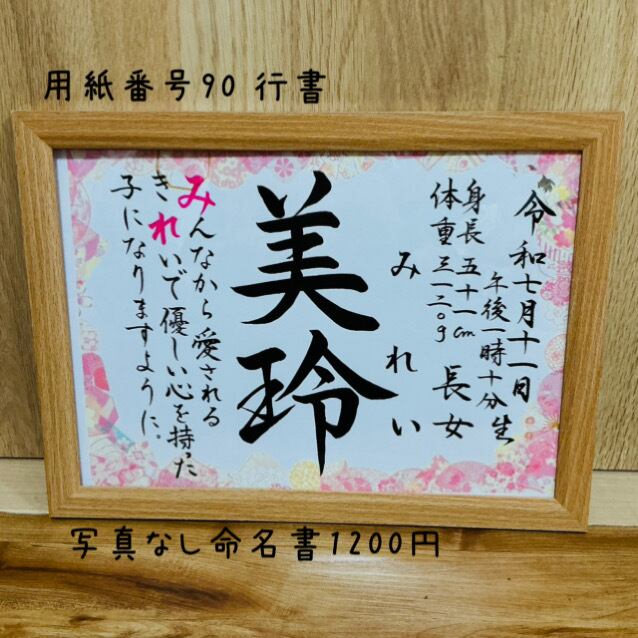 用紙番号90 行書
令和七月十一日
午後一時十分生
身長 五十一cm 長女
体重 三一二〇g
みれい
美玲
みんなから愛される
きれいで優しい心を持った
子になりますように。
写真なし命名書1200円